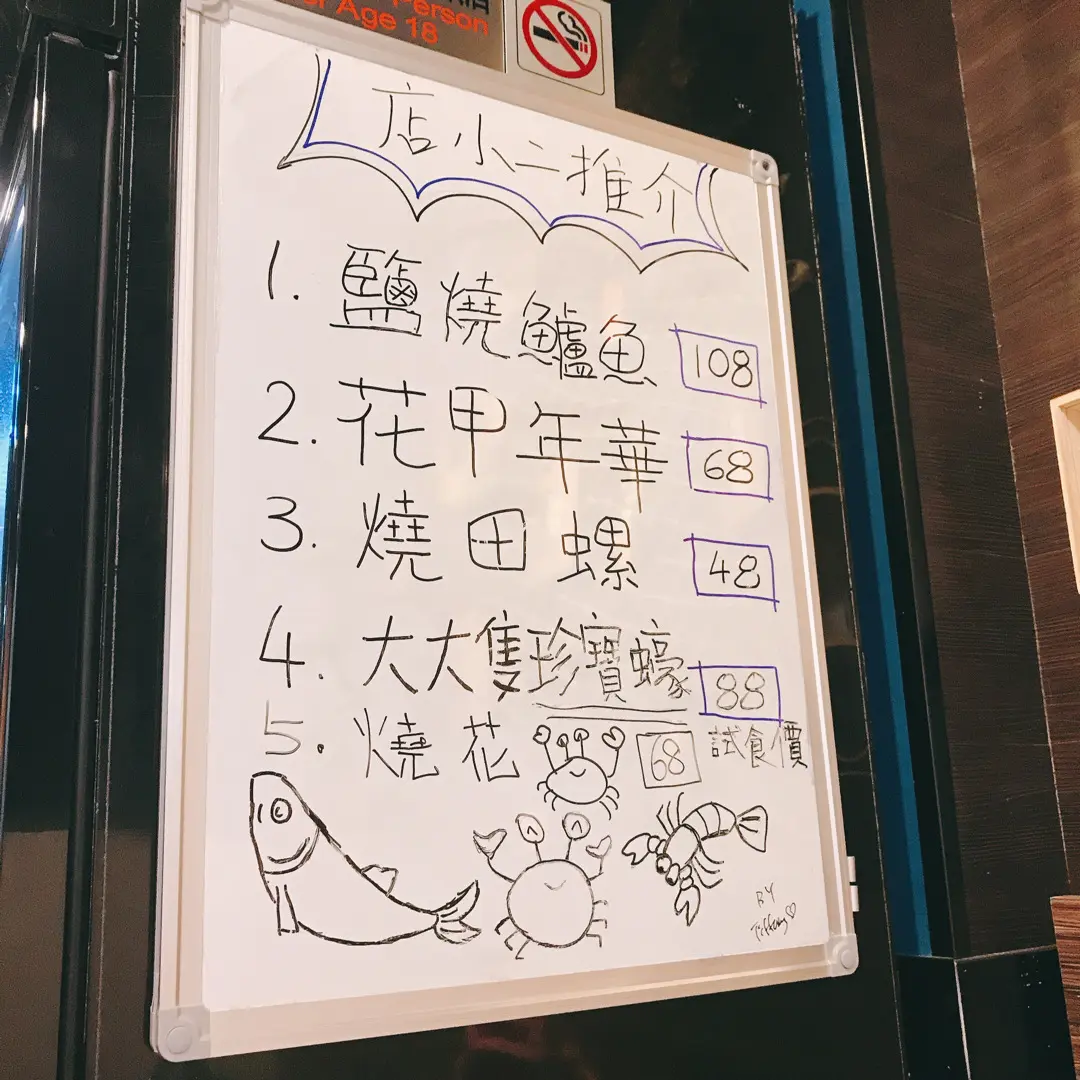 Person
Age 18
店小二推介
1. 鹽燒鱸魚 108
2. 花甲年華 68
3. 燒田螺 48
4. 大大隻珍寶蠔 88
5. 燒花 68 試食價
BY
Tiffany